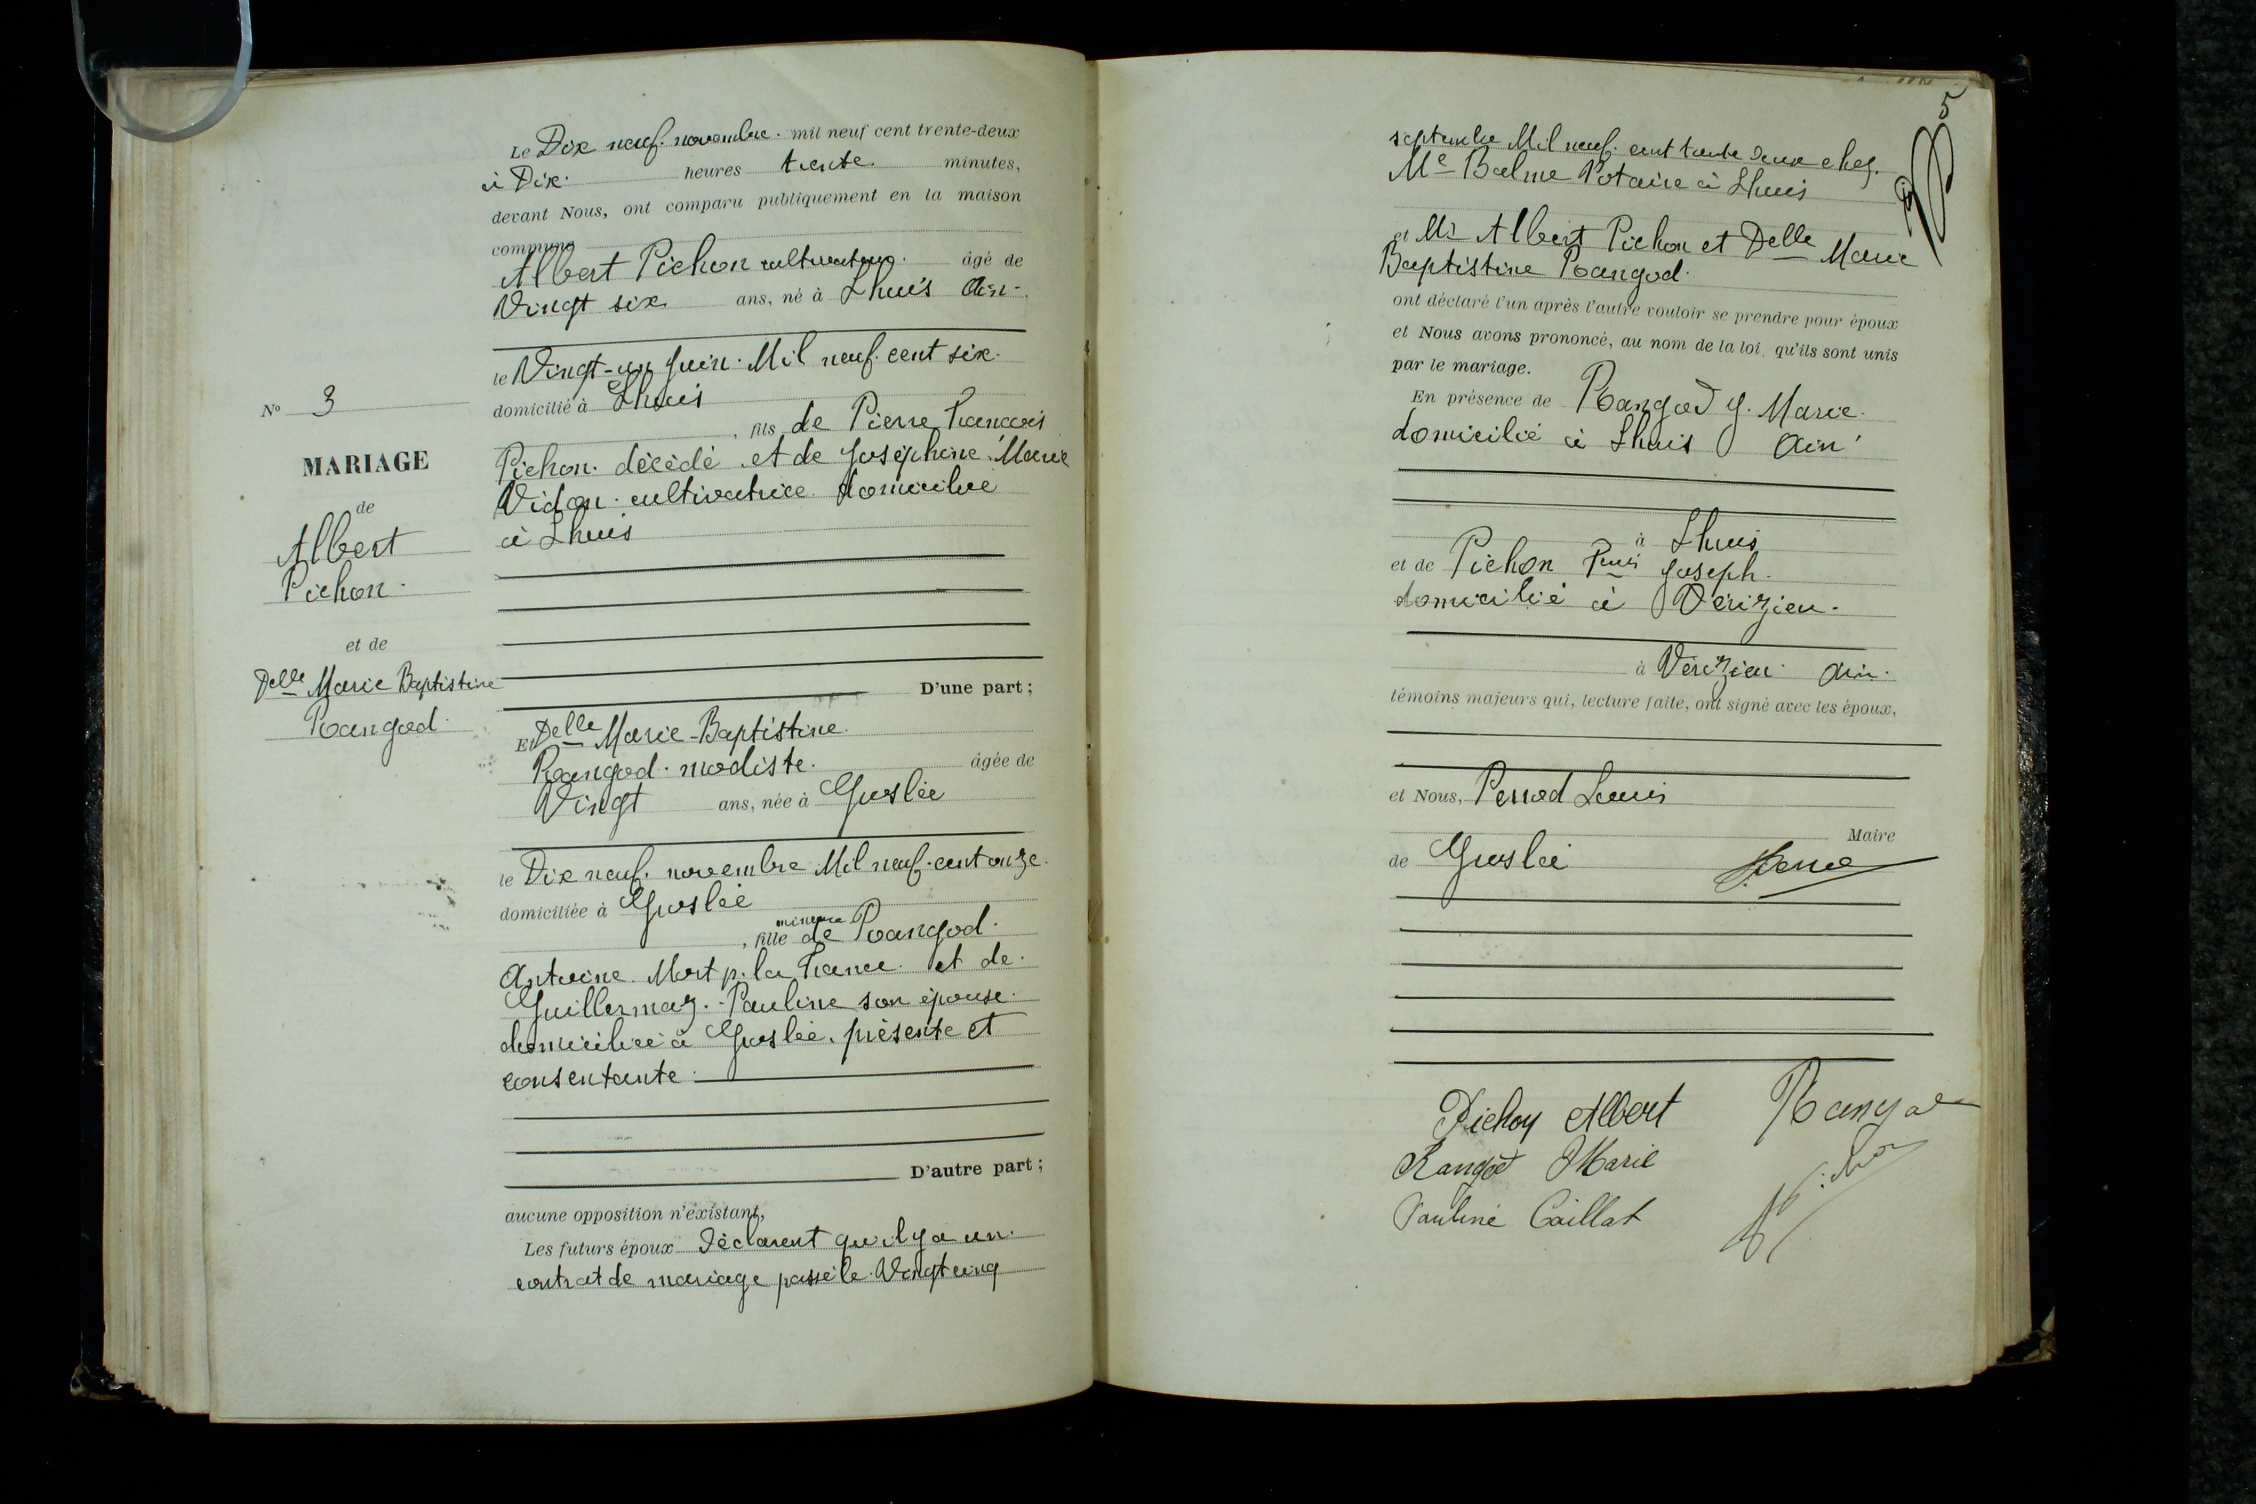 Le Dix neuf. novembre. mil neuf cent trente-deux
à Dix. heures trente minutes,
devant Nous, ont comparu publiquement en la maison
commune
Albert Pichon cultivateur. âgé de
Vingt six ans, né à Lhuis Ain.
le Vingt-un Juin. Mil neuf. cent six.
domicilié à Lhuis
, fils de Pierre François
Pichon. décédé. et de Joséphine Marie
Vidon. cultivatrice domiciliée
à Lhuis
D'une part;
No 3
MARIAGE
de
Albert
Pichon.
et de
Delle Marie Baptistine
Rangod.
Et Delle Marie-Baptistine.
Rangod. modiste. âgée de
Vingt ans, née à Groslée
le Dix neuf. novembre Mil neuf. cent onze.
domiciliée à Groslée
mineure
, fille de Rangod.
Antoine. Mort p. la France. et de.
Guillermaz. - Pauline son épouse.
domiciliée à Groslée. présente et
consentante.
D'autre part;
aucune opposition n'existant,
Les futurs époux déclarent qu'il y a un.
contrat de mariage passé le. Vingt cinq
5
septembre Mil neuf. cent trente deux chez.
Me Balme Notaire à Lhuis
et Mr Albert Pichon et Delle Marie
Baptistine Rangod.
ont déclaré l'un après l'autre vouloir se prendre pour époux
et Nous avons prononcé, au nom de la loi, qu'ils sont unis
par le mariage.
En présence de Rangod J. Marie.
domicilié à Lhuis Ain
à Lhuis
et de Pichon Joseph.
domicilié à Vérizieu.
à Vérizieu. Ain.
témoins majeurs qui, lecture faite, ont signé avec les époux,
et Nous, Perrod Louis
Maire
de Groslée
Pichon Albert Rangod
Rangod Marie
Pauline Caillat Pichon